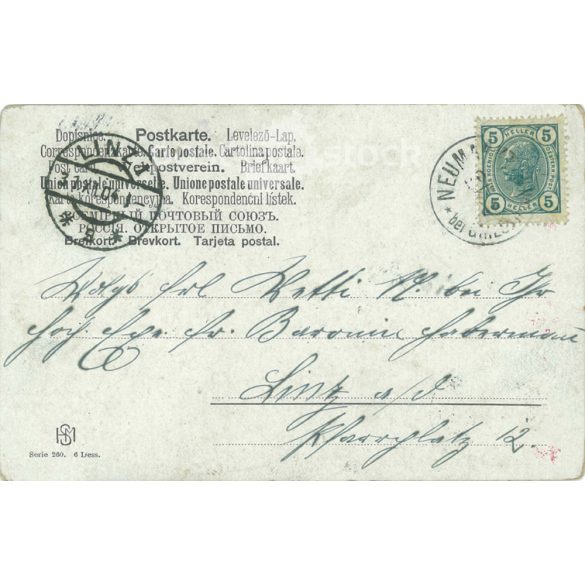 Dopisnice. Postkarte. Levelező-Lap.
Correspondenzkarte. Carte postale. Cartolina postale.
Post card. Weltpostverein. Briefkaart.
Union postale universelle. Unione postale universale.
Karta Korespondencyjna. Korespondenční lístek.
ВСЕМІРНЫЙ ПОЧТОВЫЙ СОЮЗЪ.
РОССІЯ. ОТКРЫТОЕ ПИСЬМО.
Brefkort. Brevkort. Tarjeta postal.
LINZ
5 HELLER 5
5 5
NEUM
bei
Frl Betti N. bei Ihr
Hoch. Exc. Fr. Baronin Haberman
Linz a/d
Pfarrplatz 12.
HSM
Serie 260. 6 Dess.